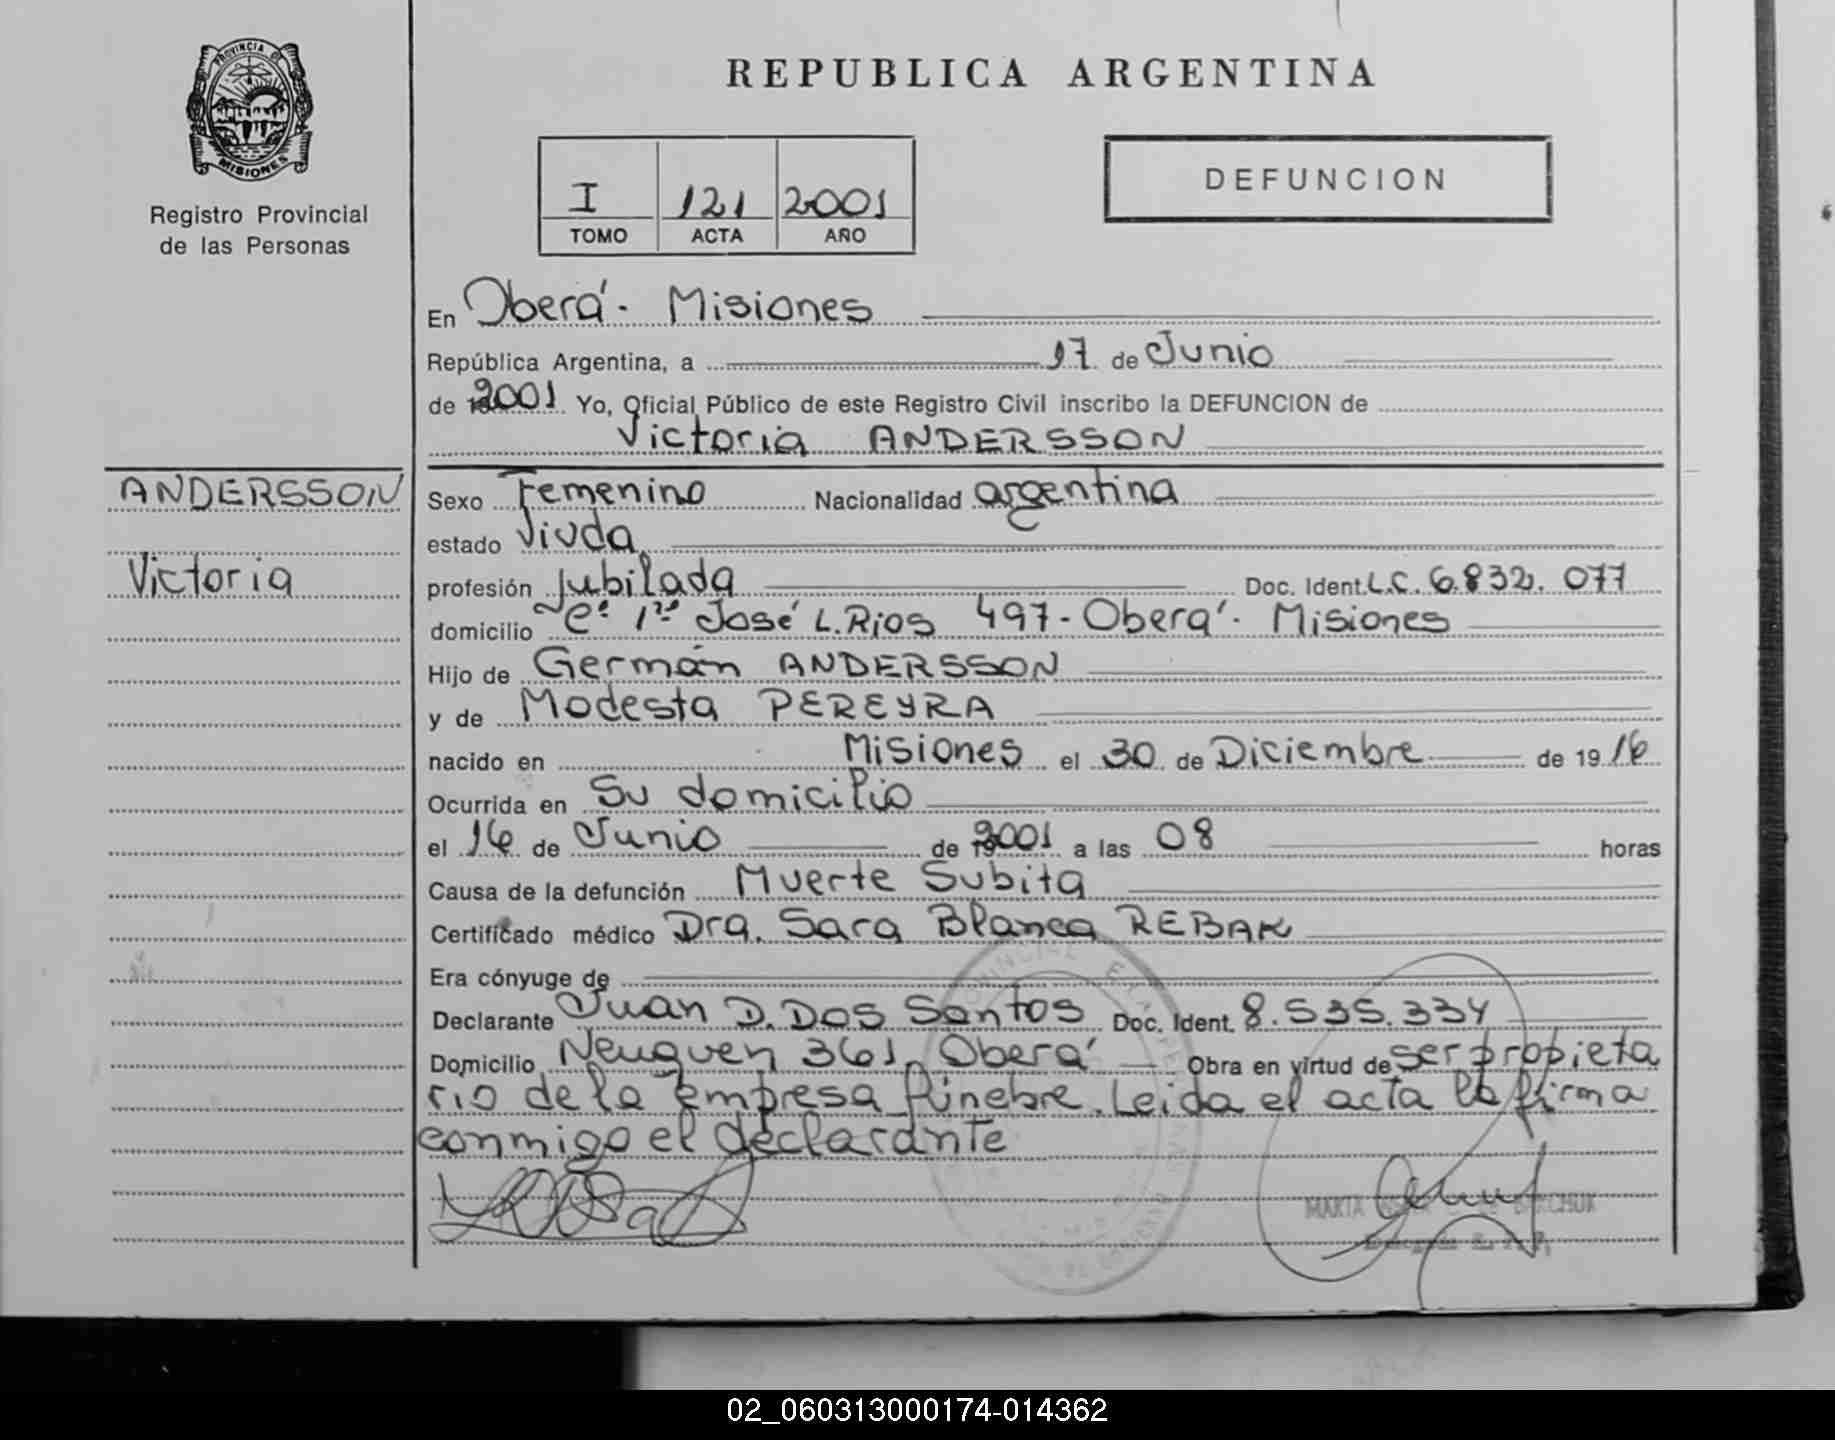 PROVINCIA DE
MISIONES
Registro Provincial
de las Personas
REPUBLICA ARGENTINA
I 121 2001
TOMO ACTA AÑO
DEFUNCION
En Oberá - Misiones
República Argentina, a 17 de Junio
de 2001 Yo, Oficial Público de este Registro Civil inscribo la DEFUNCION de
Victoria ANDERSSON
ANDERSSON
Victoria
Sexo Femenino Nacionalidad argentina
estado Viuda
profesión Jubilada Doc. Ident. L.C. 6.832.077
domicilio José L. Rios 497 - Oberá - Misiones
Hijo de Germán ANDERSSON
y de Modesta PEREYRA
nacido en Misiones el 30 de Diciembre de 1916
Ocurrida en Su domicilio
el 16 de Junio de 2001 a las 08 horas
Causa de la defunción Muerte Subita
Certificado médico Dra. Sara Blanca REBAK
Era cónyuge de
Declarante Juan D. Dos Santos Doc. Ident. 8.535.334
Domicilio Neuquen 361, Oberá Obra en virtud de ser propieta
rio de la empresa fúnebre. Leida el acta la firma
conmigo el declarante
02_060313000174-014362